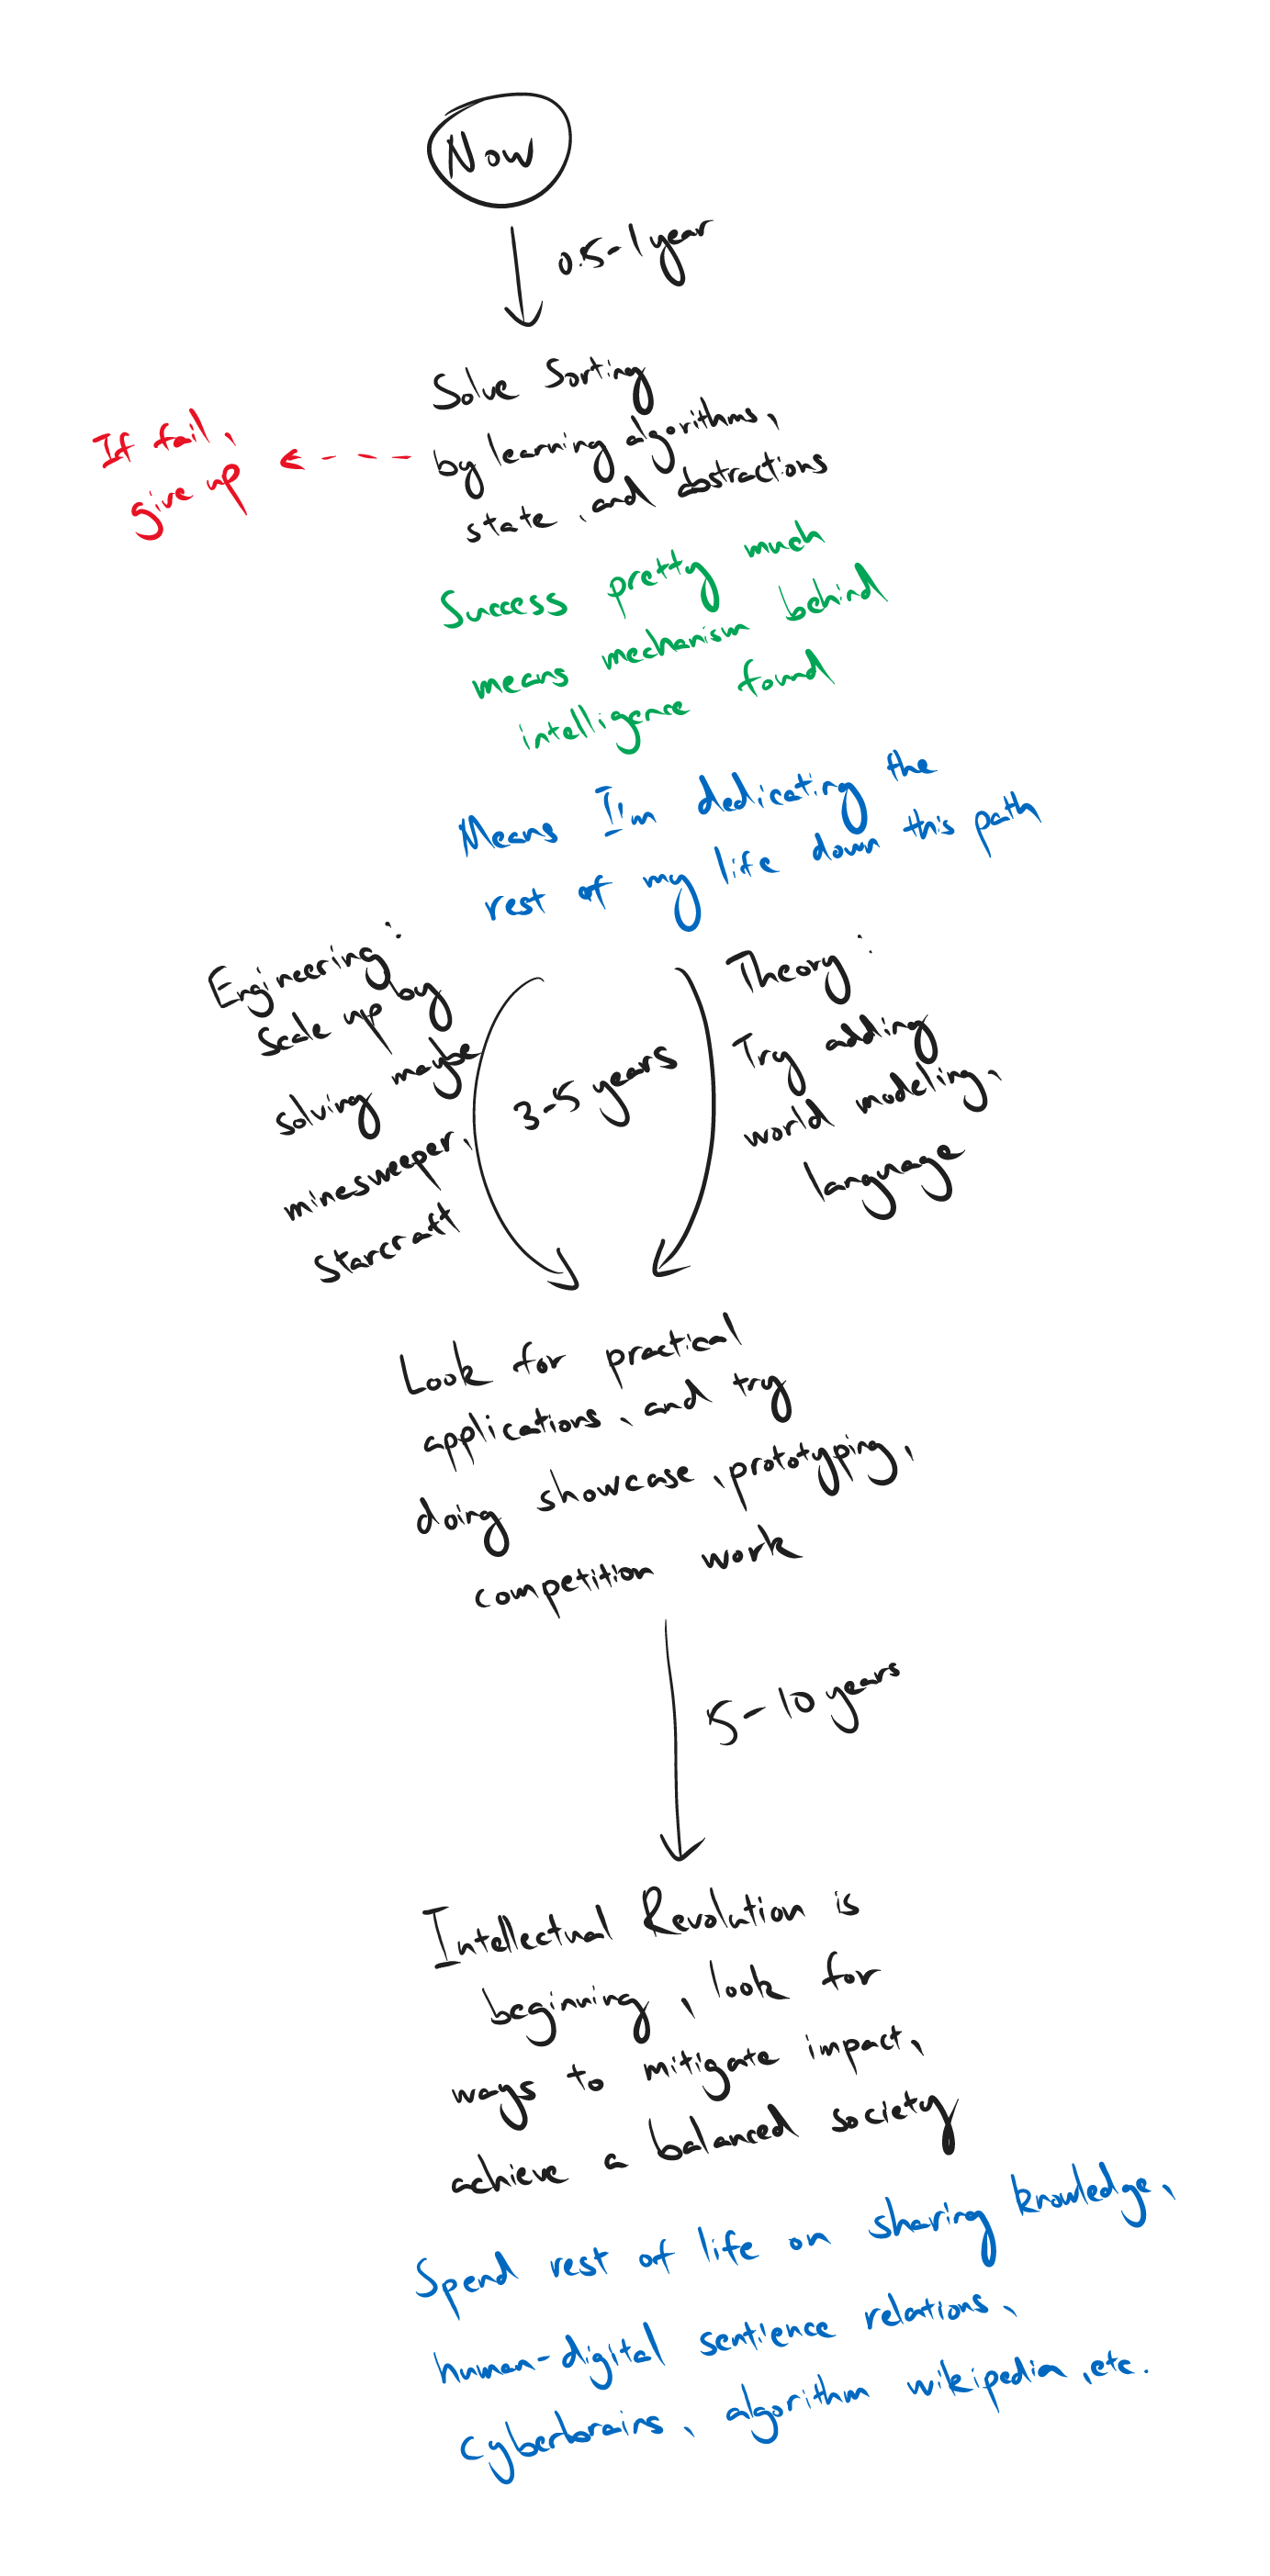 Now
0.5-1 year
Solve Sorting
by learning algorithms,
state, and abstractions
If fail,
give up
Success pretty much
means mechanism behind
intelligence found
Means I'm dedicating the
rest of my life down this path
Engineering:
Scale up by
solving maybe
minesweeper,
Starcraft
3-5 years
Theory:
Try adding
world modeling,
language
Look for practical
applications, and try
doing showcase, prototyping,
competition work
5-10 years
Intellectual Revolution is
beginning, look for
ways to mitigate impact,
achieve a balanced society
Spend rest of life on sharing knowledge,
human-digital sentience relations,
cyberbrains, algorithm wikipedia, etc.